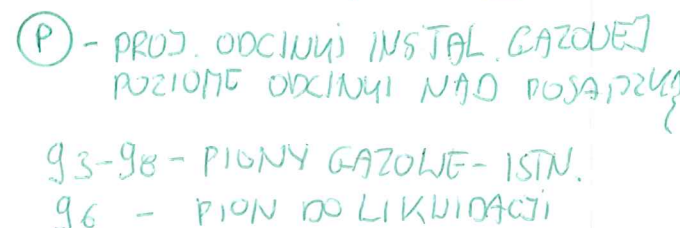 (P) - PROJ. ODCINKI INSTAL. GAZOWEJ
POZIOME ODCINKI NAD POSADZKĄ
93-98 - PIONY GAZOWE - ISTN.
96 - PION DO LIKWIDACJI